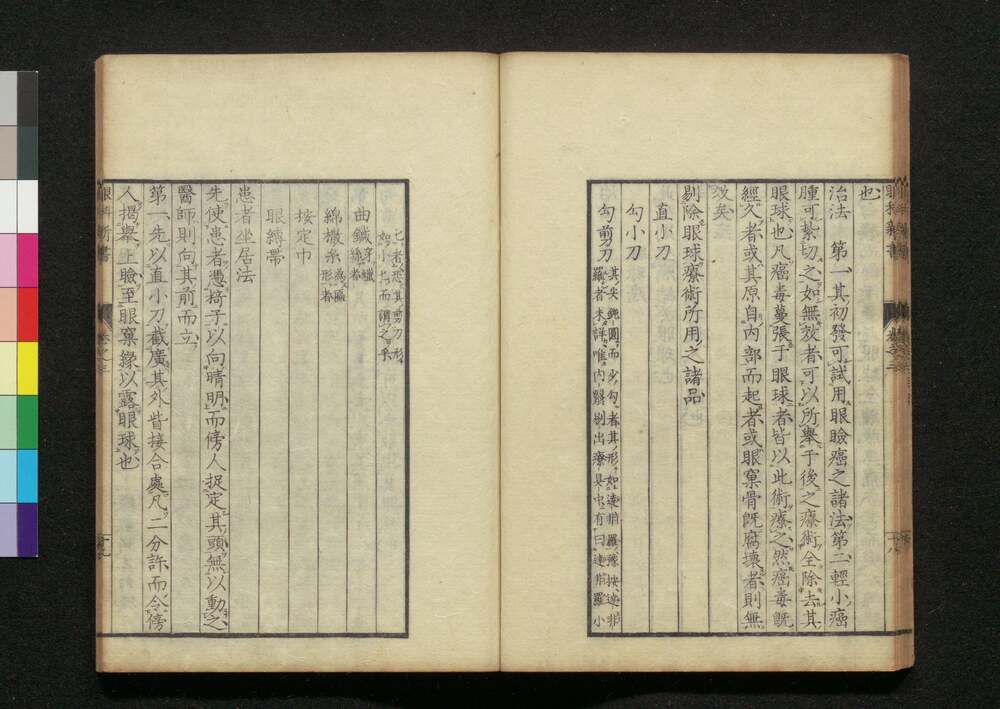 也
治法　第一其初發可試用眼瞼癌之諸法第二輕小癌
腫可紮切之如無效者可以所擧于後之療術全除去其
眼球也凡癌毒蔓張于眼球者皆以此術療之然癌毒旣
經久者或其原自內部而起者或眼窠骨旣腐壞者則無
效矣
剔除眼球療術所用之諸品
直小刀
勾小刀
勾剪刀
其尖鈍圓而少勾者其形如
羅者未詳唯內翳剔出療具中有曰
小
匕者蓋其剪刀形
匕而謂之乎
曲鍼
穿蠟
綿撒糸
形者
按定巾
眼縛帶
患者坐居法
先使患者凴椅子以向晴明而傍人捉定其頭無以動之
醫師則向其前而立
第一先以直小刀截廣其外眥接合處凡二分許而令傍
人揭擧上瞼至眼窠緣以露眼球也
眼科新書